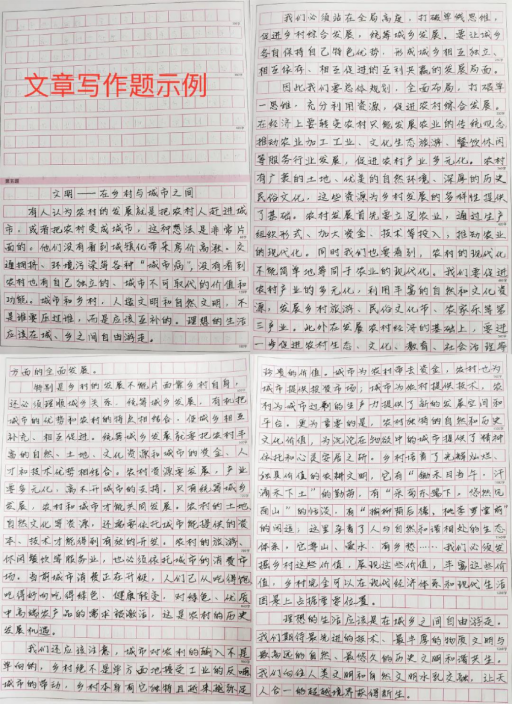 文章写作题示例
第五题
文明——在乡村与城市之间
有人认为农村的发展就是把农村人赶进城
市，或者把农村变成城市，这种想法是非常片
面的，他们没有看到城镇化带来房价高涨、交
通拥挤、环境污染等各种“城市病”，没有看到
农村也有自己独立的、城市不可取代的价值和
功能。城市和乡村，人类文明和自然文明，不
是谁要压过谁，而是应该互补的。理想的生活
应该在城、乡之间自由游走。
我们必须站在全局高度，打破单线思维，
促进乡村综合发展，统筹城乡发展。要让城乡
各自保持自己特色优势，形成城乡相互独立、
相互依存、相互促进的互利共赢的发展局面。
因此我们要总体规划，全面布局，打破单
一思维，充分利用资源，促进农村综合发展。
在经济上要转变农村只能发展农业的传统观念
推动农业加工工业、文化生态旅游、餐饮休闲
等服务行业发展，促进农村产业多元化。农村
有广袤的土地、优美的自然环境、深厚的历史
民俗文化，这些资源为乡村发展的多样性提供
了基础。农村发展首先要立足农业，通过生产
组织形式、加大资金、技术等投入，推动农业
的现代化。同时我们也要看到，农村的现代化
不能简单地等同于农业的现代化。我们要促进
农村产业的多元化，利用丰富的自然和文化资
源，发展乡村旅游、民俗文化节、农家乐等第
三产业。此外在发展农村经济的基础上，要进
一步促进农村生态、文化、教育、社会治理等
方面的全面发展。
特别是乡村的发展不能片面靠乡村自身，
还必须理顺城乡关系，统筹城乡发展，有机把
城市的优势和农村的特点相结合，使城乡相互
补充、相互促进。统筹城乡发展就要把农村丰
富的自然、土地、文化资源和城市的资金、人
才和技术优势相结合。农村资源要发展，产业
要多元化，离不开城市的支持。只有统筹城乡
发展，农村和城市才能共同发展。农村的土地
自然文化等资源，还需要依托城市能提供的资
本、技术才能得到有效的开发。农村的旅游、
休闲餐饮等服务业，也必须依托城市的消费市
场。当前城市消费正在升级，人们已从吃得饱
吃得好向吃得绿色、健康转变，对绿色、优质
中高端农产品的需求极激活，这是农村的历史
发展机遇。
我们还应该注意，城市对农村的融入不是
单向的，乡村绝不是单方面地接受工业的反哺
城市的带动，乡村本身有它独特且越来越弥足
珍贵的价值。城市为农村带去资金，农村也为
城市提供投资市场；城市为农村提供技术，农
村为城市过剩的生产力提供了新的发展空间和
平台。更为重要的是，农村独特的自然和历史
文化价值，为沉沦在物欲中的城市提供了精神
依托和心灵安居之所。乡村培育了光辉灿烂、
独具价值的农耕文明，它有“锄禾日当午，汗
滴禾下土”的勤苦，有“采菊东篱下，悠然见
南山”的恬淡，有“榆柳荫后檐，桃李罗堂前”
的闲适，这里孕育了人与自然和谐相处的生态
体系。它靠山、爱水、有乡愁……我们必须发
掘乡村这些价值，展现这些价值，丰富这些价
值，乡村完全可以在现代经济体系和现代生活
图景上占据重要位置。
理想的生活应该是在城乡之间自由游走。
我们期待最先进的技术、最丰厚的物质文明与
最高远的自然、最悠久的历史文明和谐共生。
我们向往人类文明和自然文明水乳交融，让天
人合一的超越境界获得新生。